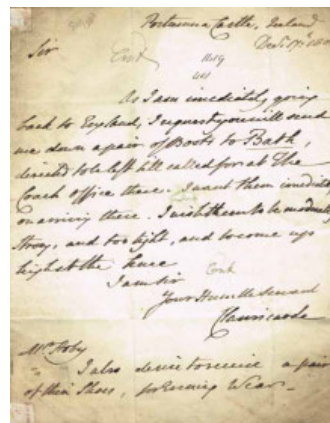 Portumna Castle, Ireland
Decr. 17th
Sir
As I am imediately going
back to England, I request you will send
me down a pair of Boots to Bath,
directed to be left till called for at The
Coach office there. I want them imediately
on arriving there. I wish them to be made very
Strong, and too tight, and to come up
high to the knee
I am Sir
Your Humble Servant
Clanricarde
Mr. Hoby
I also desire to receive a pair
of thin Shoes, for Evening Wear